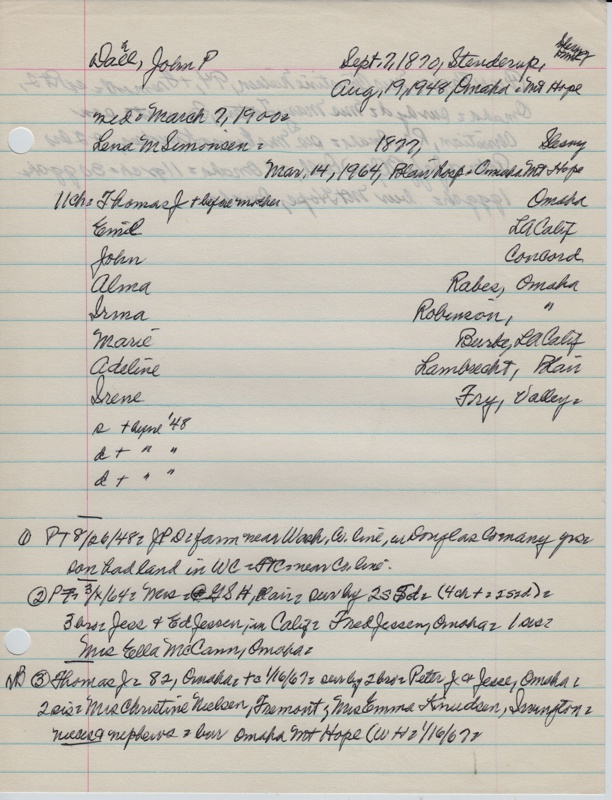 Dall, John P Sept. 7, 1870, Stenderup,
Aug, 19, 1948, Omaha = Mt Hope
m = d = March 7, 1900 =
Lena M Simonsen = 1877,
Mar. 14, 1964, Blair hosp = Omaha Mt Hope
11ch = Thomas J + before mother Omaha
Emil LA Calif
John Concord
Alma Rabes, Omaha
Irma Robinson, "
Marie Burke, LA Calif
Adeline Lambrecht, Blair
Irene Fry, Valley =
s + before '48
d + " "
d + " "
① P + 8/26/48 = JP D = farm near Wash, Co. line, in Douglas Co many yrs =
son had land in WC = = near Co. line.
② P = 3/ /64 = Mrs = , Blair = sur by 2s 5d = (4ch + = 2s2d) =
3 bro = Jess & Ed Jessen, in Calif = Fred Jessen, Omaha = 1 sis =
Mrs Ella McCann, Omaha =
NB ③ Thomas J = 82, Omaha = 1/16/67 = sur by 2 bro = Peter J. & Jesse, Omaha =
2 sis = Mrs Christine Nielsen, Fremont; Mrs Emma Knudsen, Irvington =
nieces & nephews = bur Omaha Mt Hope (WH = 1/16/67 =